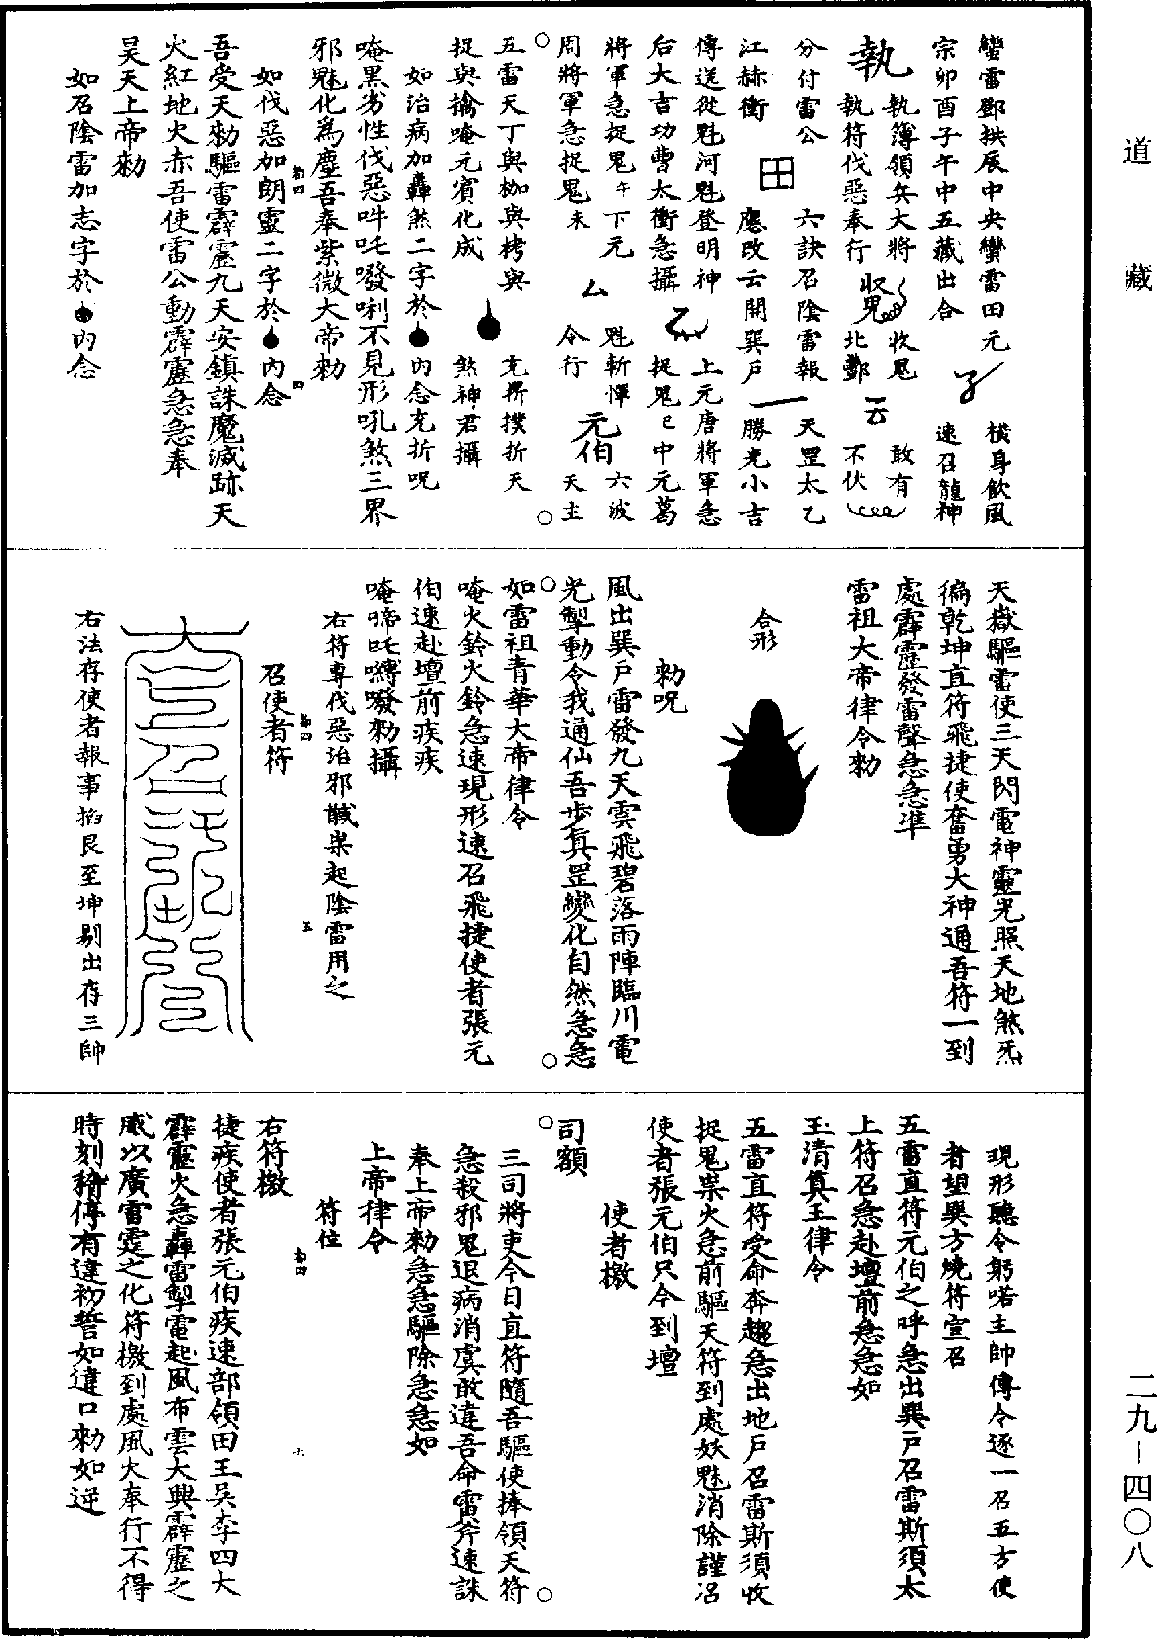 道藏
蠻雷鄧拱辰中央蠻雷田元 橫身飲風
宗卯酉子午中五藏出合 速召龍神
執 執簿領兵大將 收鬼 敢有
執符伐惡奉行 收鬼 北酆 云 不伏
分付雷公 六訣召陰雷報 天罡太乙
江赫衝 田 應改云開巽戶 勝光小吉
傳送從魁河魁登明神 上元唐將軍急
后大吉功曹太衝急攝 捉鬼巳中元葛
將軍急捉鬼午下元 魁斬憚 元伯 六波
周將軍急捉鬼未 令行 天主
五雷天丁與枷與栲與 充擠撲折天
捉與擒唵元賓化成 煞神君攝
如治病加轟煞二字於 內念充折呪
唵黑劣性伐惡吽吒㗶唎不見形吼煞三界
邪魅化為塵吾奉紫微大帝勑
如伐惡加朗靈二字於 內念
吾受天勑驅雷霹靂九天安鎮誅魔滅跡天
火紅地火赤吾使雷公動霹靂急急奉
昊天上帝勑
如召陰雷加志字於 內念
天嶽驅雷使三天閃電神靈光照天地煞炁
徧乾坤直符飛捷使奮勇大神通吾符一到
處霹靂發雷聲急急準
雷祖大帝律令勑
合形
勑呪
風出巽戶雷發九天雲飛碧落雨陣臨川電
光掣動令我通仙吾步真罡變化自然急急
如雷祖青華大帝律令
唵火鈴火鈴急速現形速召飛捷使者張元
伯速赴壇前疾疾
唵啼吒嚩㗶勑攝
右符專伐惡治邪馘祟起陰雷用之
召使者符
右法存使者報事掐艮至坤剔出存三帥
現形聽令躬喏主帥傳令逐一召五方使
者望巽方燒符宣召
五雷直符元伯之呼急出巽戶召雷斯須太
上符召急赴壇前急急如
玉清真王律令
五雷直符受命奔趨急出地戶召雷斯須收
捉鬼祟火急前驅天符到處妖魅消除謹召
使者張元伯只今到壇
使者檄
司額
三司將吏今日直符隨吾驅使捧領天符
急殺邪鬼退病消虞敢違吾命雷斧速誅
奉上帝勑急急驅除急急如
上帝律令
符位
右符檄
捷疾使者張元伯疾速部領田王吳李四大
霹靂火急轟雷掣電起風布雲大興霹靂之
威以廣雷霆之化符檄到處風火奉行不得
時刻稽停有違初誓如違口勑如逆
二九－四〇八